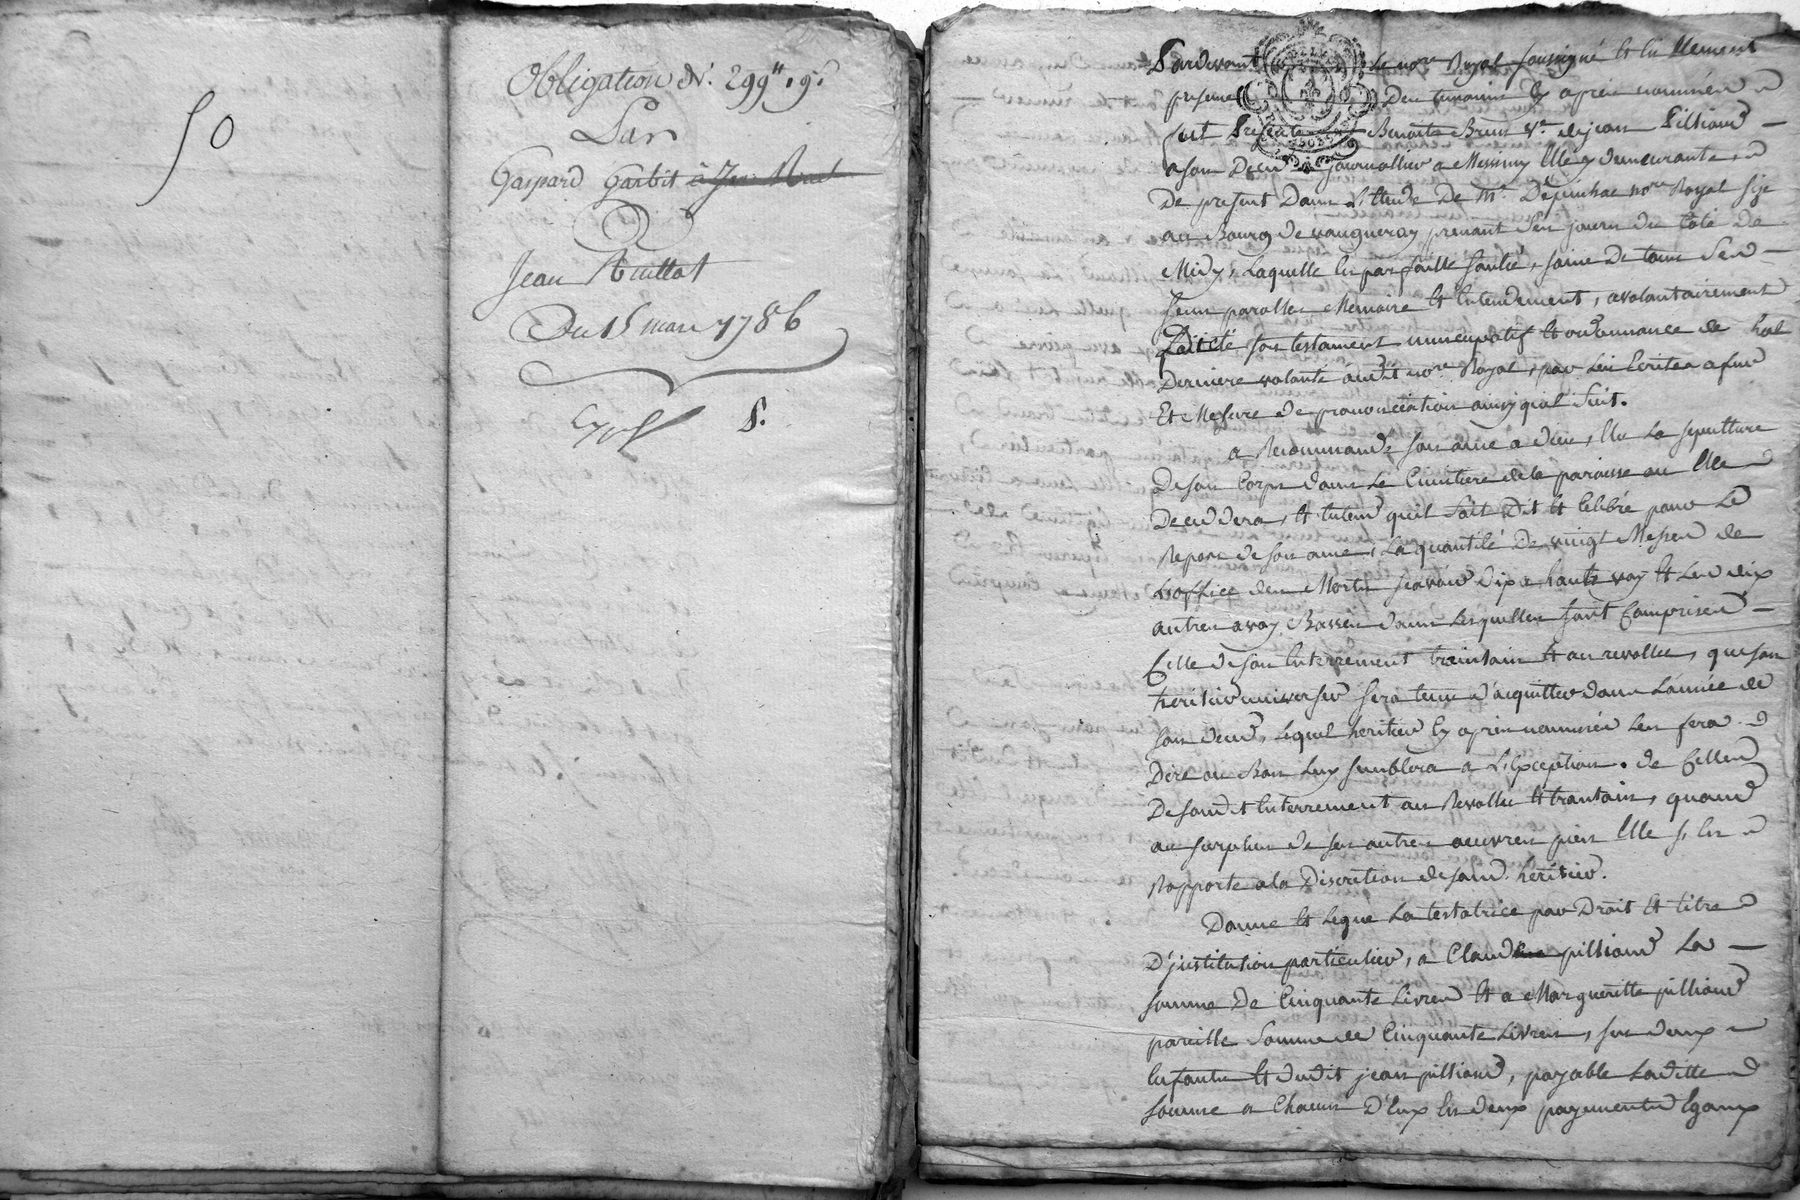 50
Obligation de 299ʰ. 9ˢ.
Par
Gaspard Garbit à Jean
D
Jean Ruillat
Du 15 mars 1786
5.
Pardevant Le noʳᵉ Royal soussigné Et En
presence Des temoins Cy apres nommés
fut Presente Benoite Brun Vᵉ. de jean Pilliond
a son Deces journallier a Messimy Elle y demeurante,
De present Dans L'Etude De Mᵉ. noʳᵉ Royal
au Bourg de vaugneray prenant ses jours du Coté de
Midy, Laquelle En parfaitte santé, saine De tous Ses
Sens parolles Memoire Et Entendement, a volontairement
Dicté son testament nuncupatif Et ordonnance de
Derniere volonté audit noʳᵉ Royal, par Lui Ecrites a fur
Et Mesure de prononciation ainsy quil Suit.
a Recommandé son ame a dieu, Elu La sepulture
De son Corps dans Le Cimetiere de la paroisse ou Elle
Decedera, Et veut quil Soit Dit Et Celebré pour Le
Repos de son ame, La quantité De vingt Messes de
L'office des Morts sçavoir dix a haute voix Et Les dix
autres a voix Basses dans Lesquelles sont Comprises
Celle de son Enterrement trentain Et au revollu, que son
heritier universel sera tenu d'acquitter dans L'année de
son deces, Lequel heritier Cy apres nommé Les fera
Dire ou Bon Luy semblera a L'Exception. de Celles
De sondit Enterrement au Revollu Et trantain, quand
au surplus de ses autres oeuvres pies Elle s'En
Rapporte a la Discretion de sond. heritier.
Donne Et Legue La testatrice par Droit Et titre
D'institution particuliere, a Claude pilliond La
somme De Cinquante Livres Et a Margueritte pilliond
pareille Somme de Cinquante Livres, ses deux
Enfants Et dudit jean pilliond, payable Laditte
somme a Chacun D'Eux En deux payements Egaux